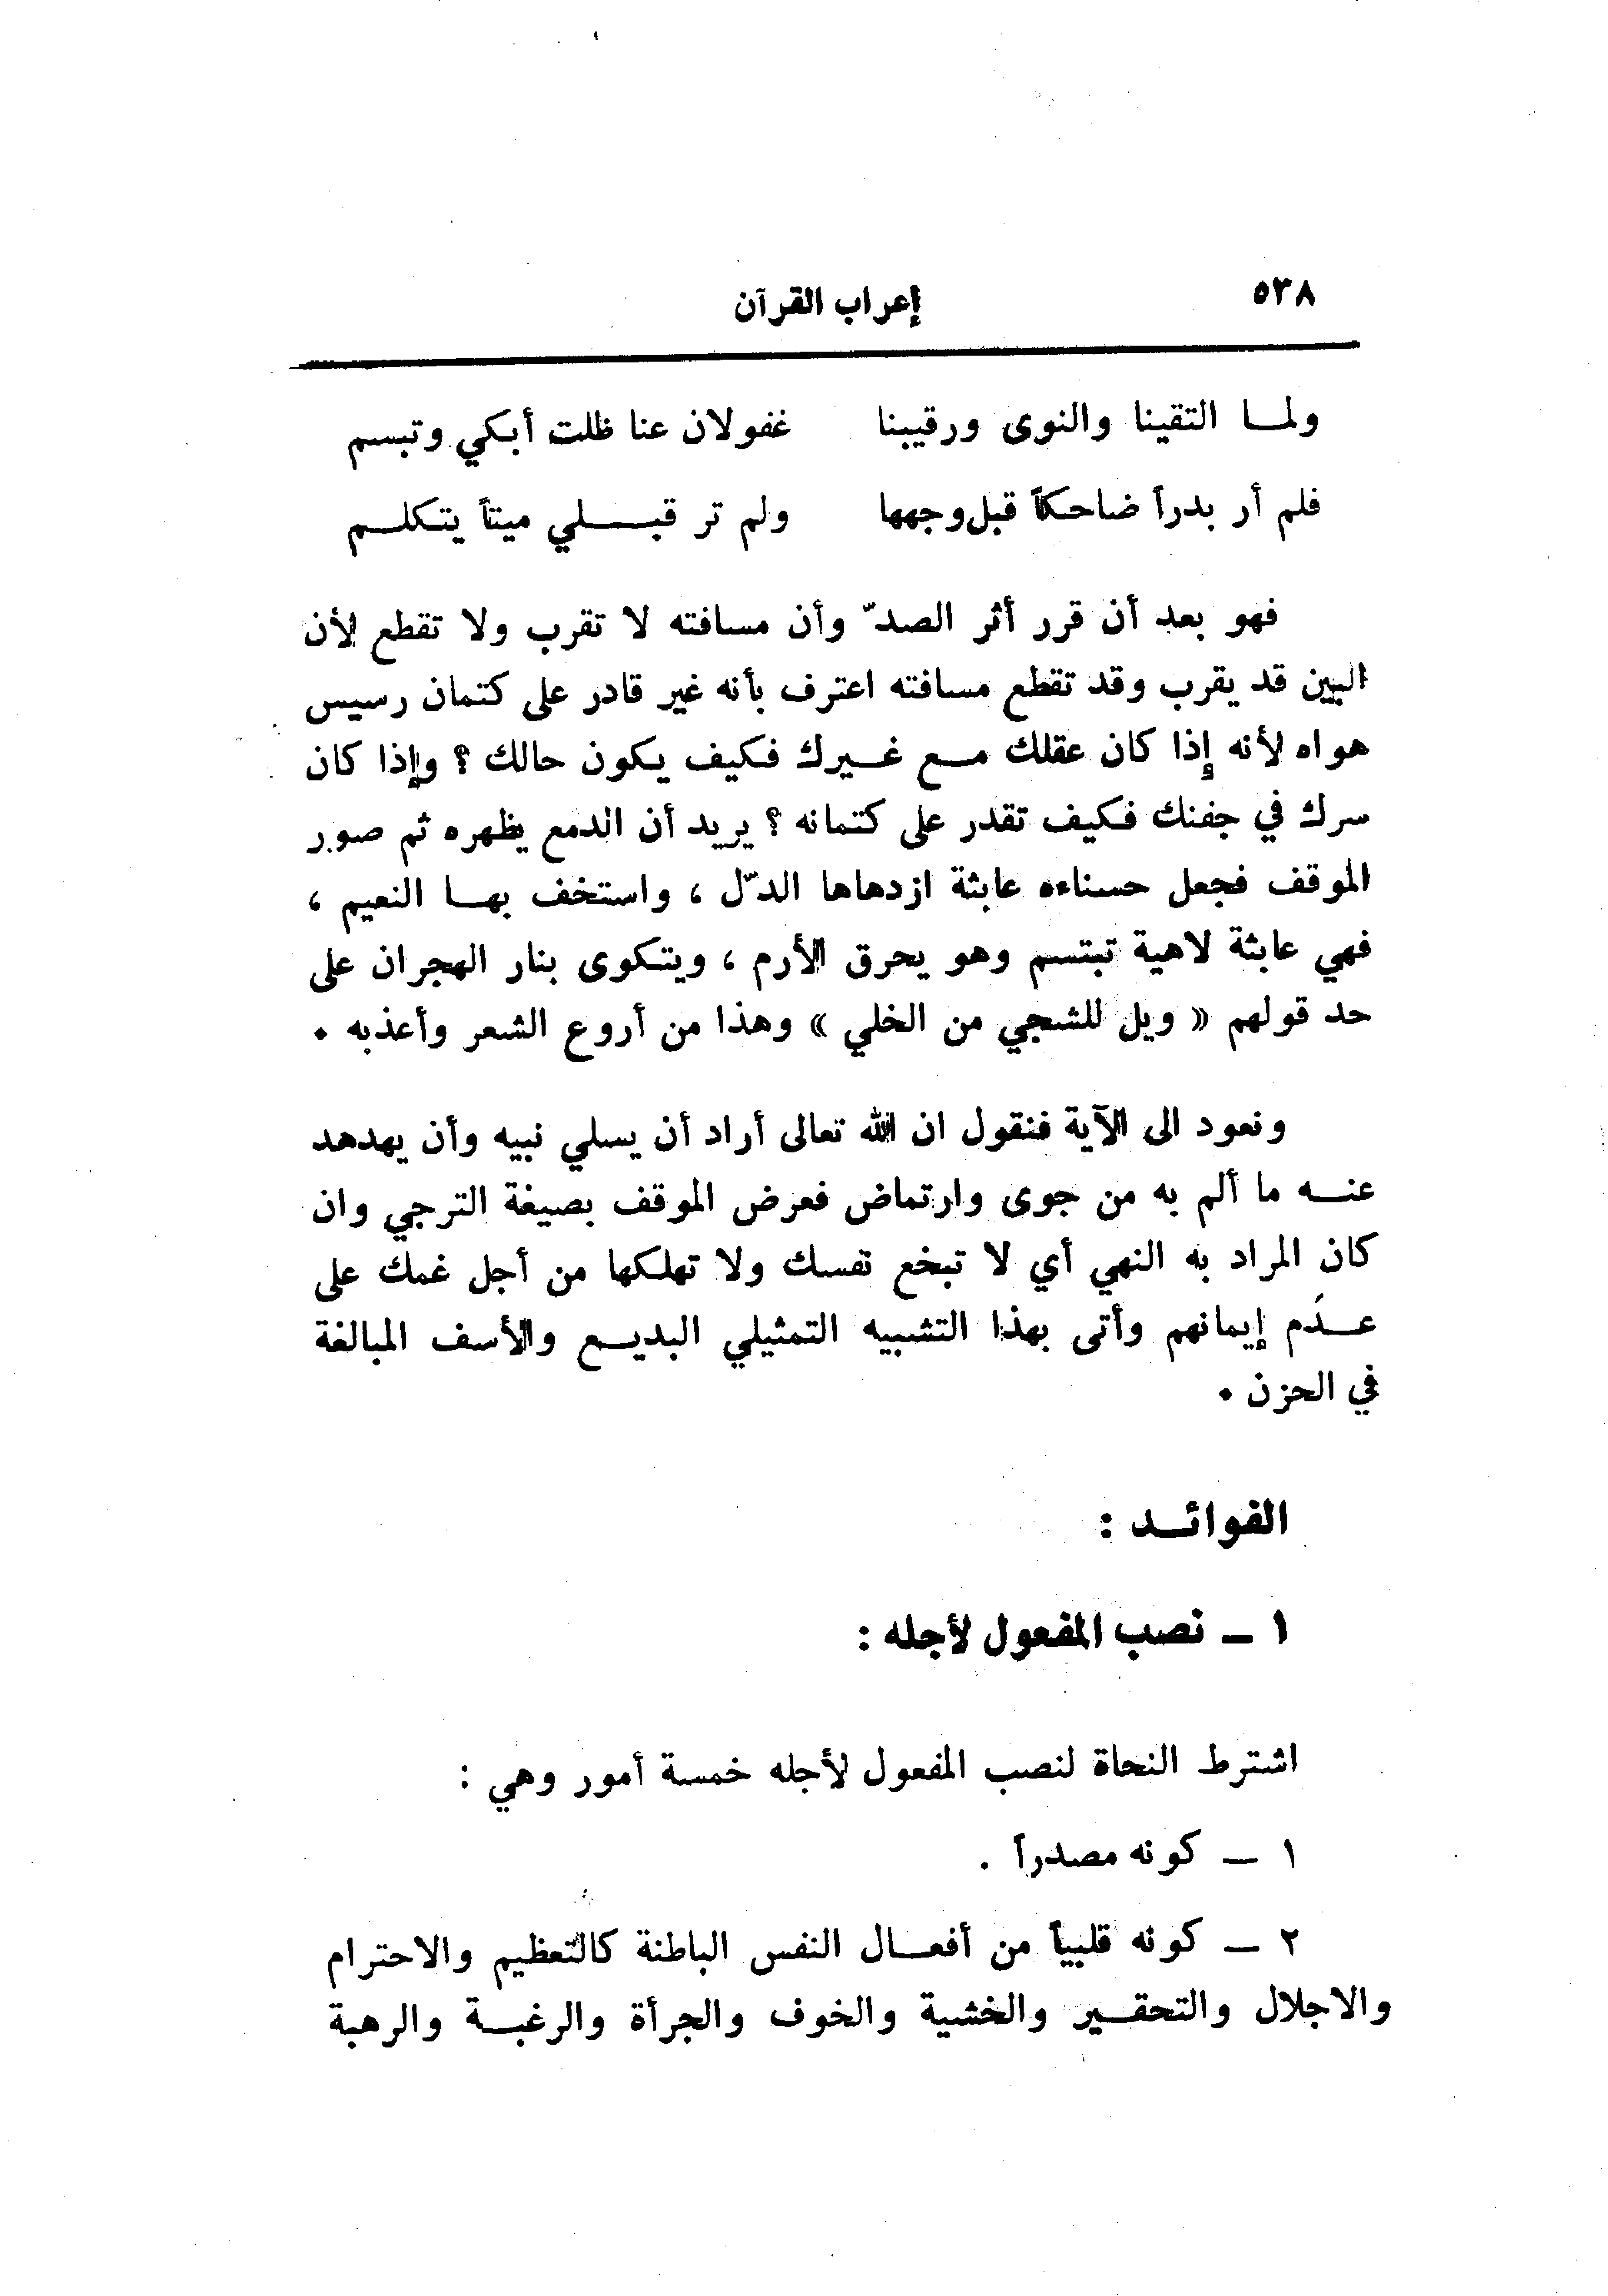 ٥٣٨ إعراب القرآن
ولمــا التقينا والنوى ورقيبنا غفولان عنا ظلت أبكي وتبسم
فلم أر بدراً ضاحكاً قبل وجهها ولم تر قبــلي ميتاً يتكلــم
فهو بعد أن قرر أثر الصدّ وأن مسافته لا تقرب ولا تقطع لأن
البين قد يقرب وقد تقطع مسافته اعترف بأنه غير قادر على كتمان رسيس
هواه لأنه إذا كان عقلك مــع غــيرك فكيف يكون حالك ؟ وإذا كان
سرك في جفنك فكيف تقدر على كتمانه ؟ يريد أن الدمع يظهره ثم صور
الموقف فجعل حسناءه عابثة ازدهاها الدّل ، واستخف بهــا النعيم ،
فهي عابثة لاهية تبتسم وهو يحرق الأرم ، ويتكوى بنار الهجران على
حد قولهم « ويل للشجي من الخلي » وهذا من أروع الشعر وأعذبه .
ونعود الى الآية فنقول ان الله تعالى أراد أن يسلي نبيه وأن يهدهد
عنــه ما ألم به من جوى وارتماض فعرض الموقف بصيغة الترجي وان
كان المراد به النهي أي لا تبخع نفسك ولا تهلكها من أجل غمك على
عــدَم إيمانهم وأتى بهذا التشبيه التمثيلي البديــع والأسف المبالغة
في الحزن .
الفوائــد :
١ ــ نصب المفعول لأجله :
اشترط النحاة لنصب المفعول لأجله خمسة أمور وهي :
١ ــ كونه مصدراً .
٢ ــ كونه قلبياً من أفعــال النفس الباطنة كالتعظيم والاحترام
والاجلال والتحقــير والخشية والخوف والجرأة والرغبــة والرهبة